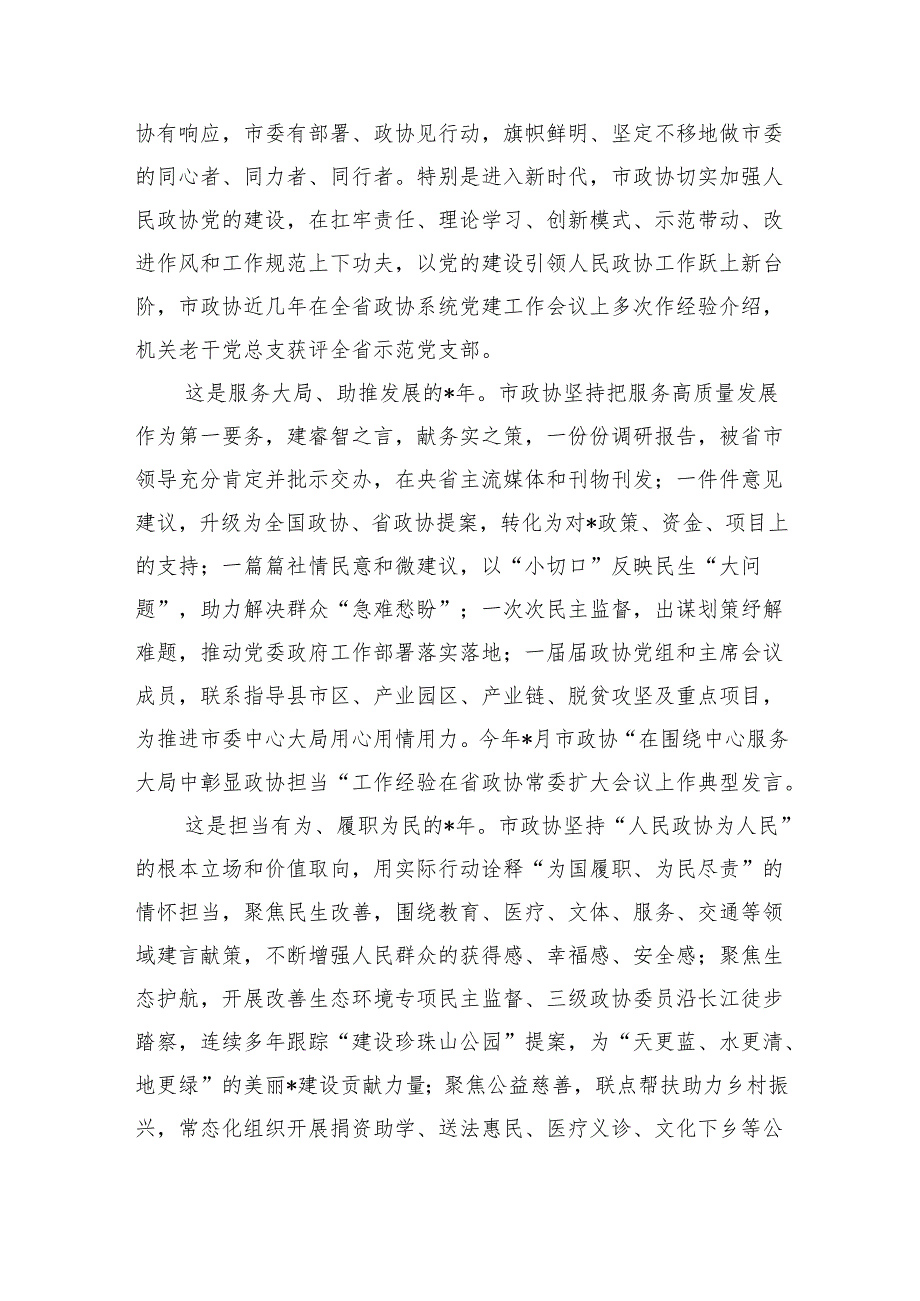 协有响应，市委有部署、政协见行动，旗帜鲜明、坚定不移地做市委
的同心者、同力者、同行者。特别是进入新时代，市政协切实加强人
民政协党的建设，在扛牢责任、理论学习、创新模式、示范带动、改
进作风和工作规范上下功夫，以党的建设引领人民政协工作跃上新台
阶，市政协近几年在全省政协系统党建工作会议上多次作经验介绍，
机关老干党总支获评全省示范党支部。
这是服务大局、助推发展的*年。市政协坚持把服务高质量发展
作为第一要务，建睿智之言，献务实之策，一份份调研报告，被省市
领导充分肯定并批示交办，在央省主流媒体和刊物刊发；一件件意见
建议，升级为全国政协、省政协提案，转化为对*政策、资金、项目上
的支持；一篇篇社情民意和微建议，以“小切口”反映民生“大问
题”，助力解决群众“急难愁盼”；一次次民主监督，出谋划策纾解
难题，推动党委政府工作部署落实落地；一届届政协党组和主席会议
成员，联系指导县市区、产业园区、产业链、脱贫攻坚及重点项目，
为推进市委中心大局用心用情用力。今年*月市政协“在围绕中心服务
大局中彰显政协担当“工作经验在省政协常委扩大会议上作典型发言。
这是担当有为、履职为民的*年。市政协坚持“人民政协为人民”
的根本立场和价值取向，用实际行动诠释“为国履职、为民尽责”的
情怀担当，聚焦民生改善，围绕教育、医疗、文体、服务、交通等领
域建言献策，不断增强人民群众的获得感、幸福感、安全感；聚焦生
态护航，开展改善生态环境专项民主监督、三级政协委员沿长江徒步
踏察，连续多年跟踪“建设珍珠山公园”提案，为“天更蓝、水更清、
地更绿”的美丽*建设贡献力量；聚焦公益慈善，联点帮扶助力乡村振
兴，常态化组织开展捐资助学、送法惠民、医疗义诊、文化下乡等公